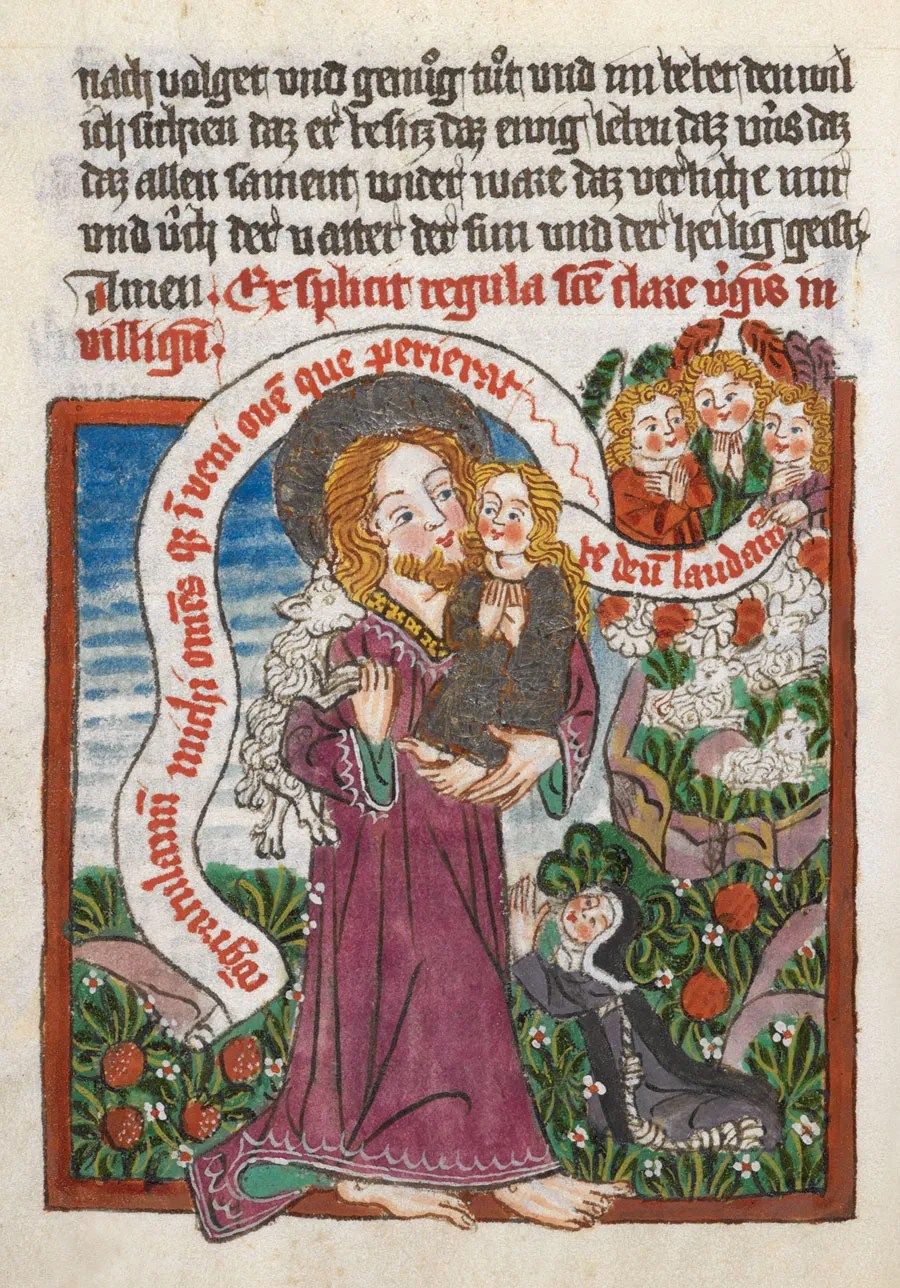 nach volget vnd genuͦg tuͦt vnd im lebet den wil
ich sichren daz er besitz daz ewig leben daz vns daz
daz allen sament vnder ware daz verliche mir
vnd uͥch der vatter der sun vnd der heilig geist
Amen. Ex splicit regula scē clare v̉gīs in
villigīn.
cōgratulamī michi om̄es qz īveni ouē que perierat
te deū laudam